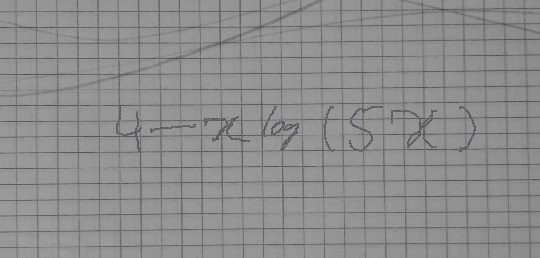 4 - x log (5x)